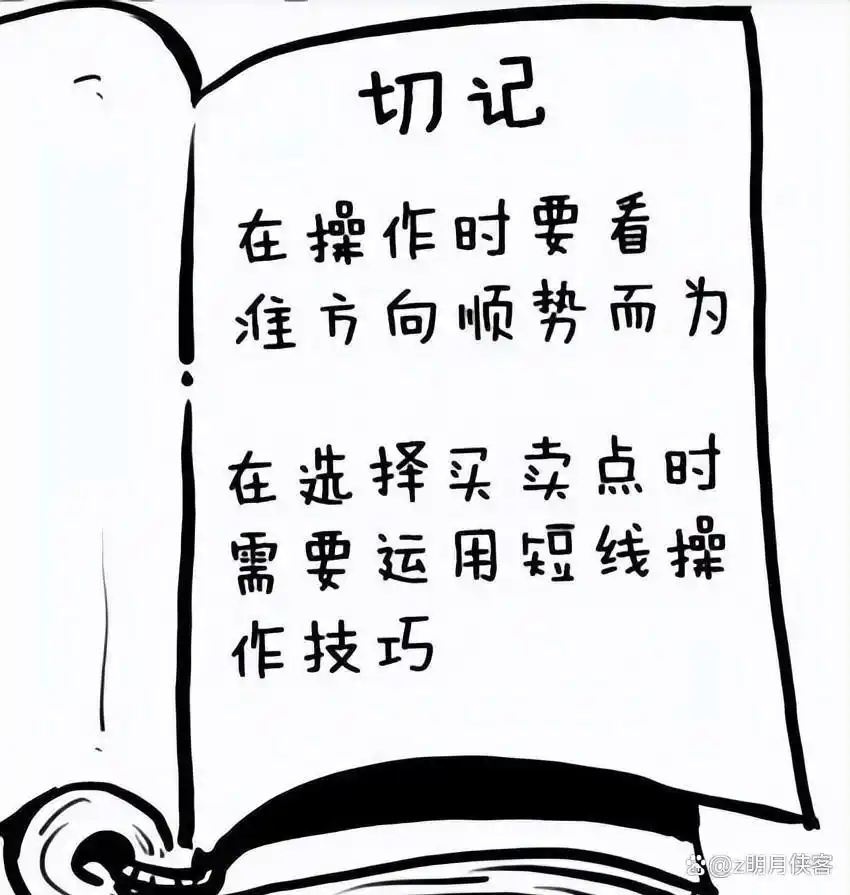 切记
在操作时要看
准方向顺势而为
在选择买卖点时
需要运用短线操
作技巧
@z明月侠客